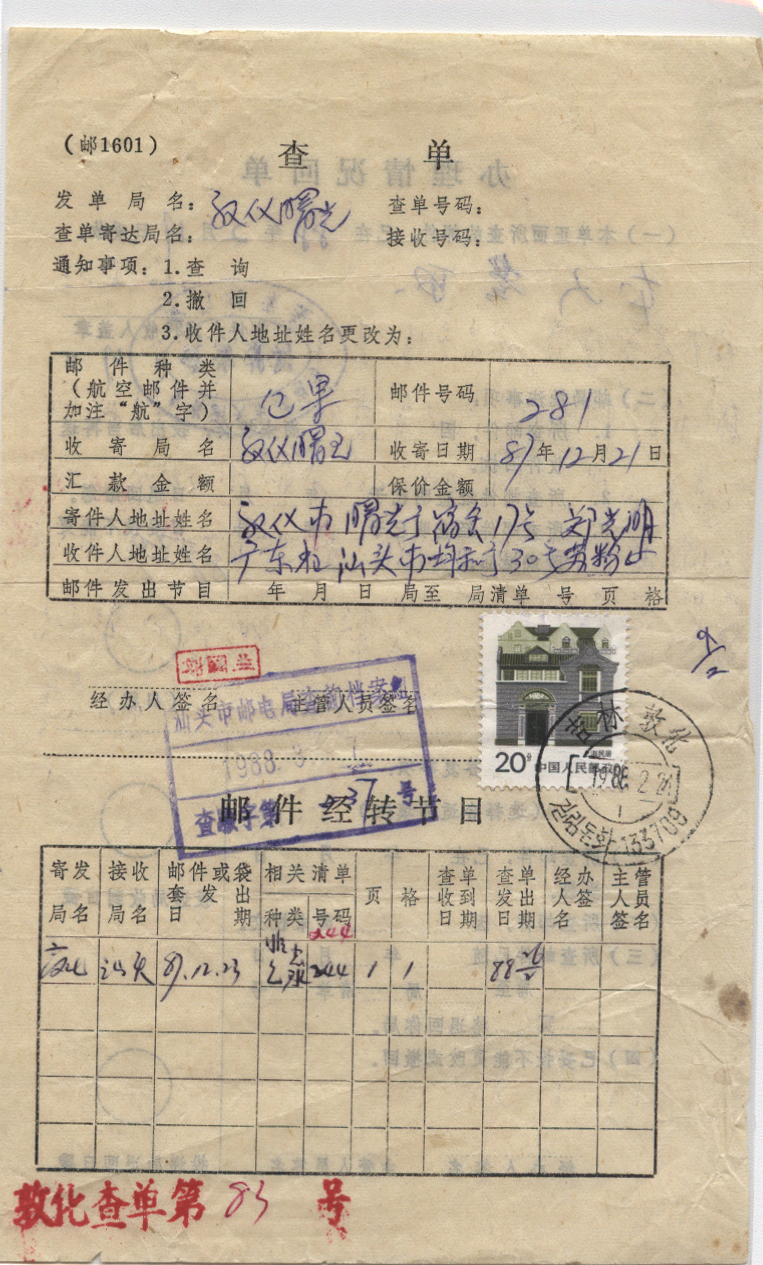 (邮1601)
查 单
发单局名：敦化曙光 查单号码：
查单寄达局名： 接收号码：
通知事项：1.查 询
2.撤 回
3.收件人地址姓名更改为：
邮件种类(航空邮件并加注“航”字) 包果 邮件号码 281
收寄局名 敦化曙光 收寄日期 87年12月21日
汇款金额 保价金额
寄件人地址姓名 敦化市曙光 宿舍17号 郑光明
收件人地址姓名 广东省汕头市 30号
邮件发出节目 年 月 日 局至 局清单 号 页 格
经办人签名 主管人员签名
汕头市邮电局查询档案
1988.3
查 字第 37 号
20分 中国人民邮政
吉林敦化
1988.2.2
133709
邮件经转节目
寄发局名 接收局名 邮件或袋套发出日期 相关清单 种类 号码 页 格 查单收到日期 查单发出日期 经办人签名 主管人员签名
244
敦化 汕头 87.12.23 244 1 1 88
敦化查单第 83 号